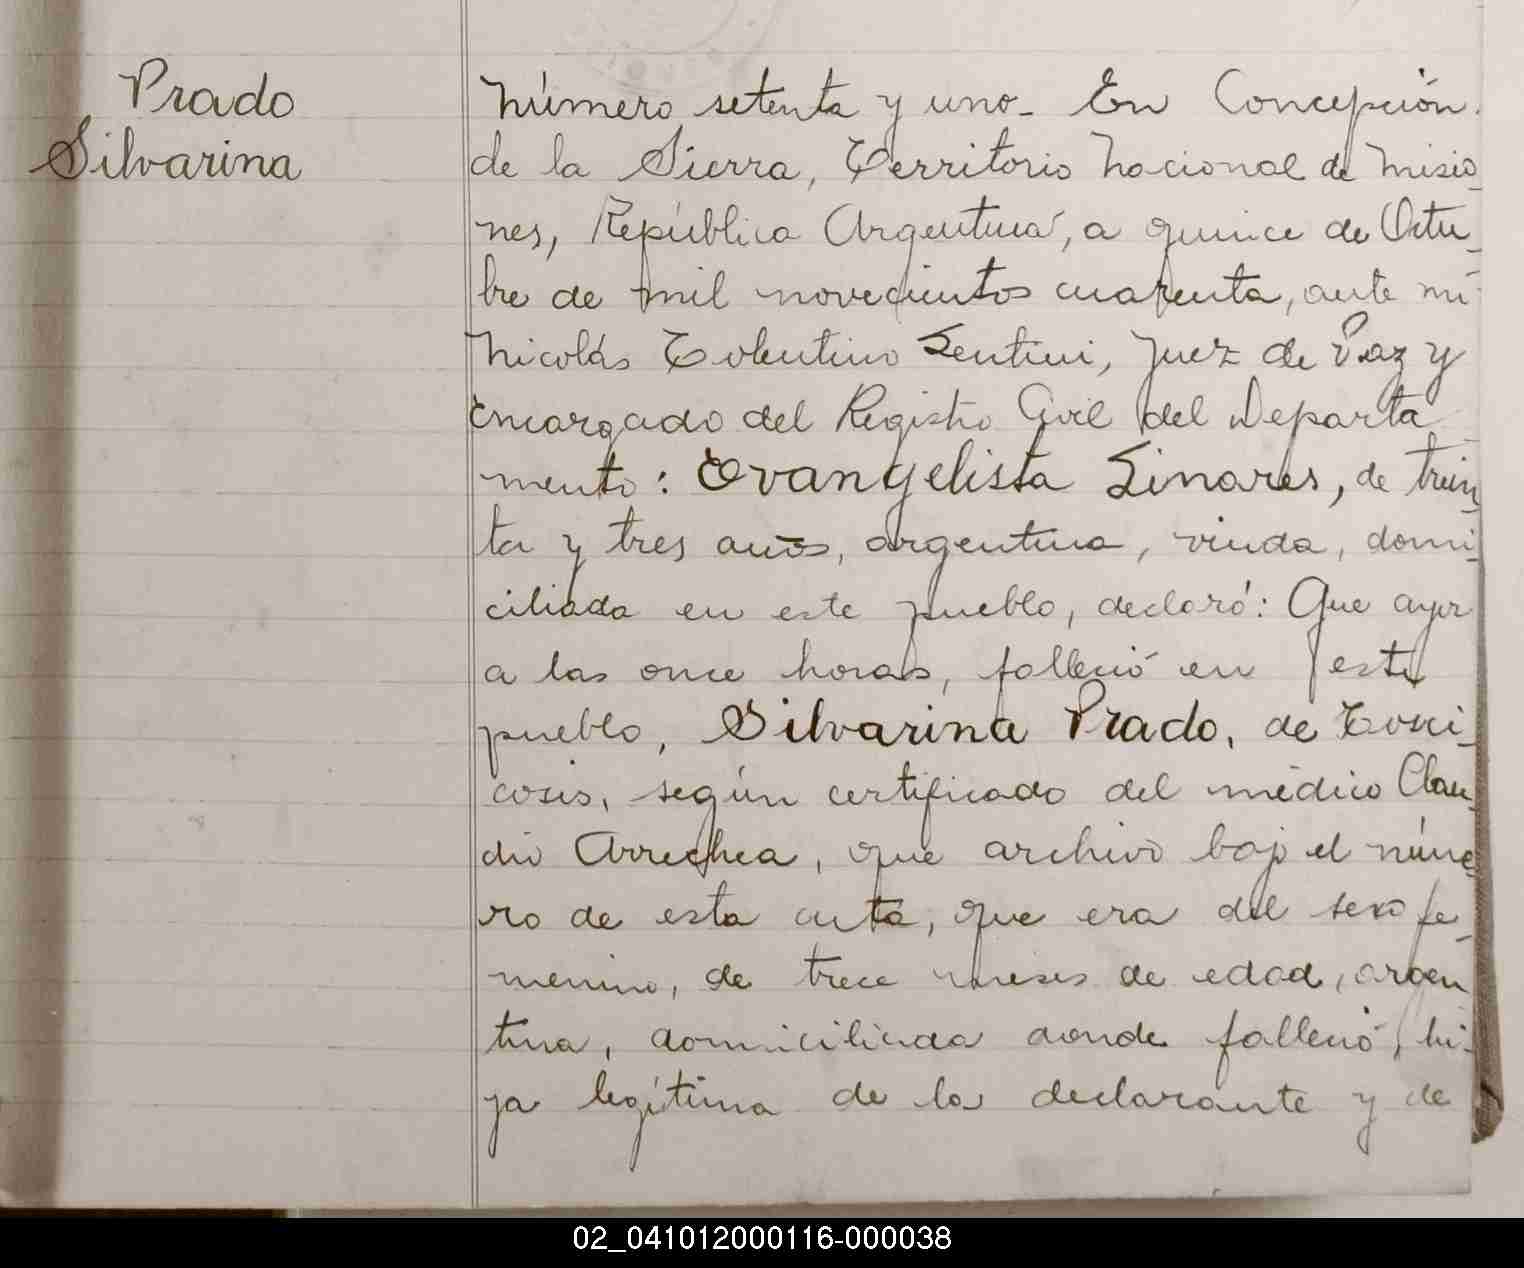 Prado
Silvarina
Número setenta y uno_ En Concepción
de la Sierra, Territorio Nacional de Misio_
nes, República Argentina, a quince de Octu_
bre de mil novecientos cuarenta, ante mí
Nicolás Tolentino Sentini, Juez de Paz y
Encargado del Registro Civil del Departa_
mento: Evangelista Linares, de trein_
ta y tres años, argentina, viuda, domi_
ciliada en este pueblo, declaró: Que ayer
a las once horas, falleció en este
pueblo, Silvarina Prado, de Toxi_
cosis, según certificado del médico Clau_
dio Arrechea, que archivo bajo el núme_
ro de esta acta, que era del sexo fe_
menino, de trece meses de edad, argen_
tina, domiciliada donde falleció, hi_
ja legítima de la declarante y de
02_041012000116-000038